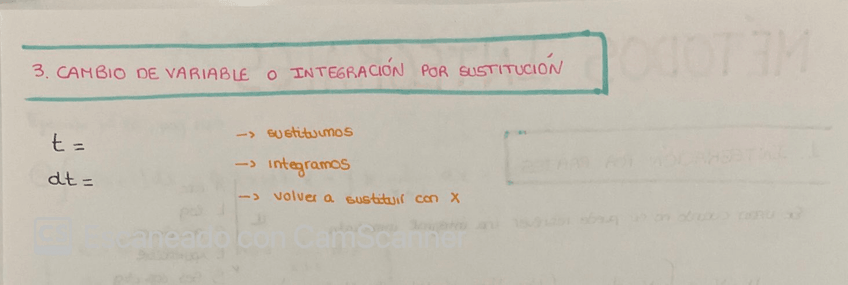 3. CAMBIO DE VARIABLE O INTEGRACIÓN POR SUSTITUCIÓN
t = → sustituimos
dt = → integramos
→ volver a sustituir con x
Escaneado con CamScanner